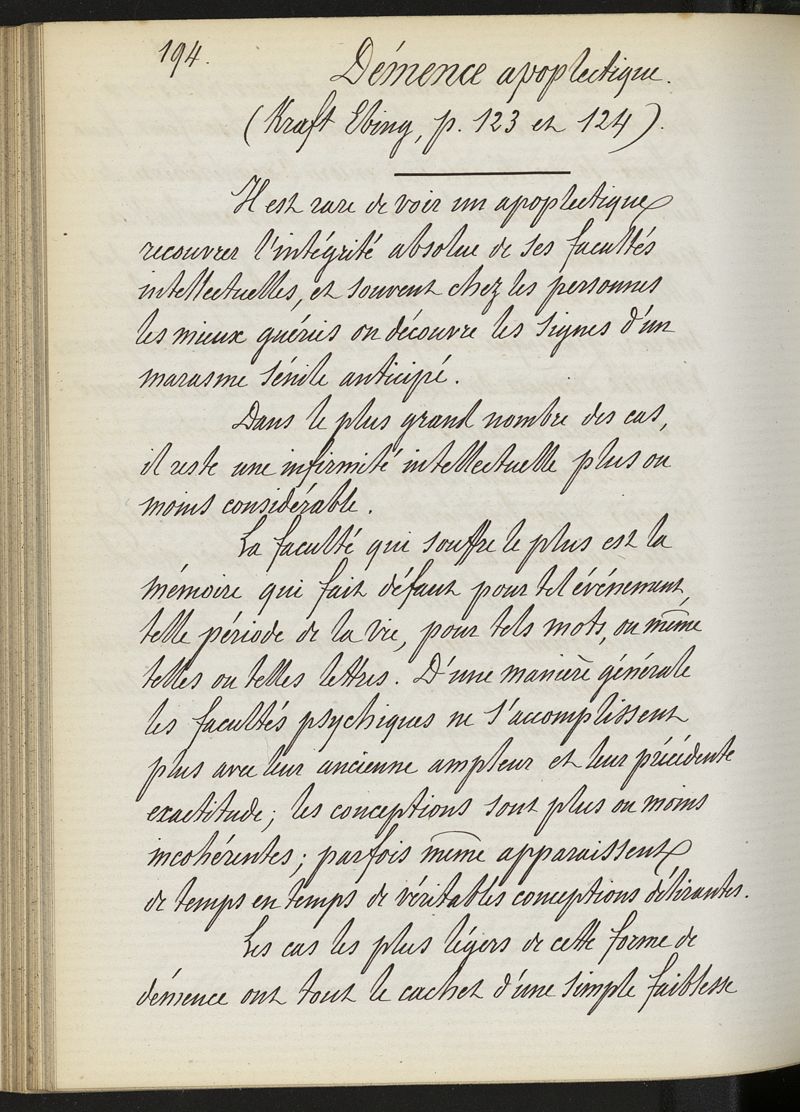 194.
Démence apoplectique.
(Kraft Ebing, p. 123 et 124).
Il est rare de voir un apoplectique
recouvrer l'intégrité absolue de ses facultés
intellectuelles, et souvent chez les personnes
les mieux guéries on découvre les signes d'un
marasme sénile anticipé.
Dans le plus grand nombre des cas,
il reste une infirmité intellectuelle plus ou
moins considérable.
La faculté qui souffre le plus est la
mémoire qui fait défaut pour tel événement,
telle période de la vie, pour tels mots, ou même
telles ou telles lettres. D'une manière générale
les facultés psychiques ne s'accomplissent
plus avec leur ancienne ampleur et leur précédente
exactitude; les conceptions sont plus ou moins
incohérentes; parfois même apparaissent
de temps en temps de véritables conceptions délirantes.
Les cas les plus légers de cette forme de
démence ont tout le cachet d'une simple faiblesse